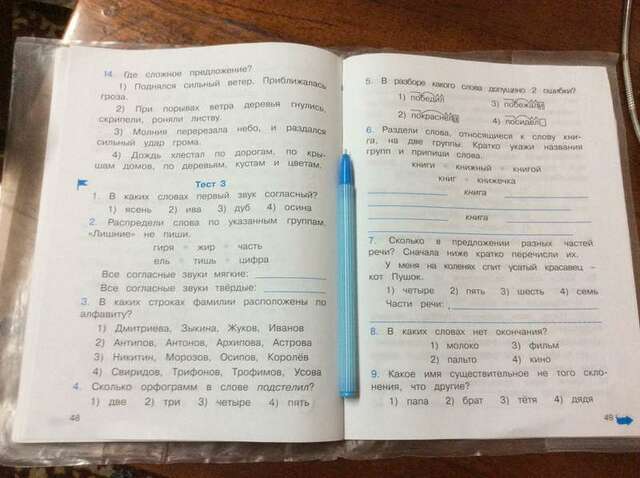 14. Где сложное предложение?
1) Поднялся сильный ветер. Приближалась
гроза.
2) При порывах ветра деревья гнулись,
скрипели, роняли листву.
3) Молния перерезала небо, и раздался
сильный удар грома.
4) Дождь хлестал по дорогам, по кры-
шам домов, по деревьям, кустам и цветам.
Тест 3
1. В каких словах первый звук согласный?
1) ясень 2) ива 3) дуб 4) осина
2. Распредели слова по указанным группам.
«Лишние» не пиши.
гиря жир часть
ель тишь цифра
Все согласные звуки мягкие:
Все согласные звуки твёрдые:
3. В каких строках фамилии расположены по
алфавиту?
1) Дмитриева, Зыкина, Жуков, Иванов
2) Антипов, Антонов, Архипова, Астрова
3) Никитин, Морозов, Осипов, Королёв
4) Свиридов, Трифонов, Трофимов, Усова
4. Сколько орфограмм в слове подстелил?
1) две 2) три 3) четыре 4) пять
48
5. В разборе какого слова допущено 2 ошибки?
1) победил 3) побежал
2) покраснел 4) посидел
6. Раздели слова, относящиеся к слову кни-
га, на две группы. Кратко укажи названия
групп и припиши слова.
книги книжный книгой
книг книжечка
книга
книга
7. Сколько в предложении разных частей
речи? Сначала ниже кратко перечисли их.
У меня на коленях спит усатый красавец –
кот Пушок.
1) четыре 2) пять 3) шесть 4) семь
Части речи:
8. В каких словах нет окончания?
1) молоко 3) фильм
2) пальто 4) кино
9. Какое имя существительное не того скло-
нения, что другие?
1) папа 2) брат 3) тётя 4) дядя
49